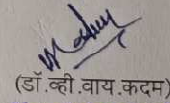 (डॉ.व्ही.वाय.कदम)